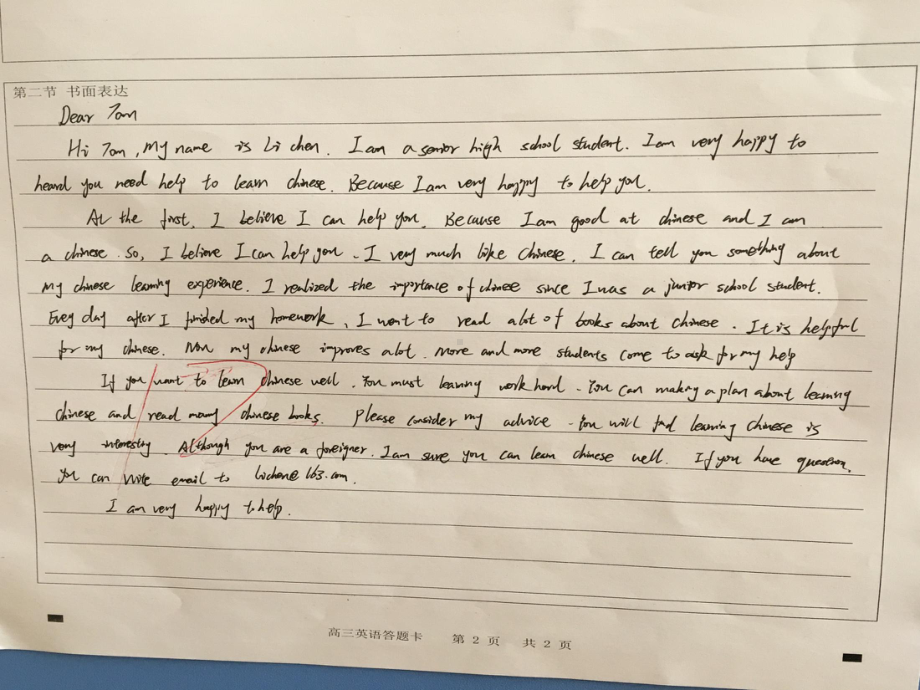 第二节 书面表达
Dear Tom
Hi Tom, My name is Li chen. I am a senior high school student. I am very happy to
heard you need help to learn chinese. Because I am very happy to help you.
At the first, I believe I can help you. Because I am good at chinese and I am
a chinese. so, I believe I can help you. I very much like Chinese. I can tell you something about
my chinese learning experience. I realized the importance of chinese since I was a junior school student.
Every day after I finished my homework, I went to read alot of books about chinese. It is helpful
for my chinese. Now my chinese improves alot. more and more students come to ask for my help
If you want to learn chinese well. You must learning work hard. You can making a plan about learning
chinese and read many chinese books. Please consider my advice. You will find learning chinese is
very interesting. Although you are a foreigner. I am sure you can learn chinese well. If you have question.
You can write email to lichen@163.com.
I am very happy to help.
高三英语答题卡 第 2 页 共 2 页